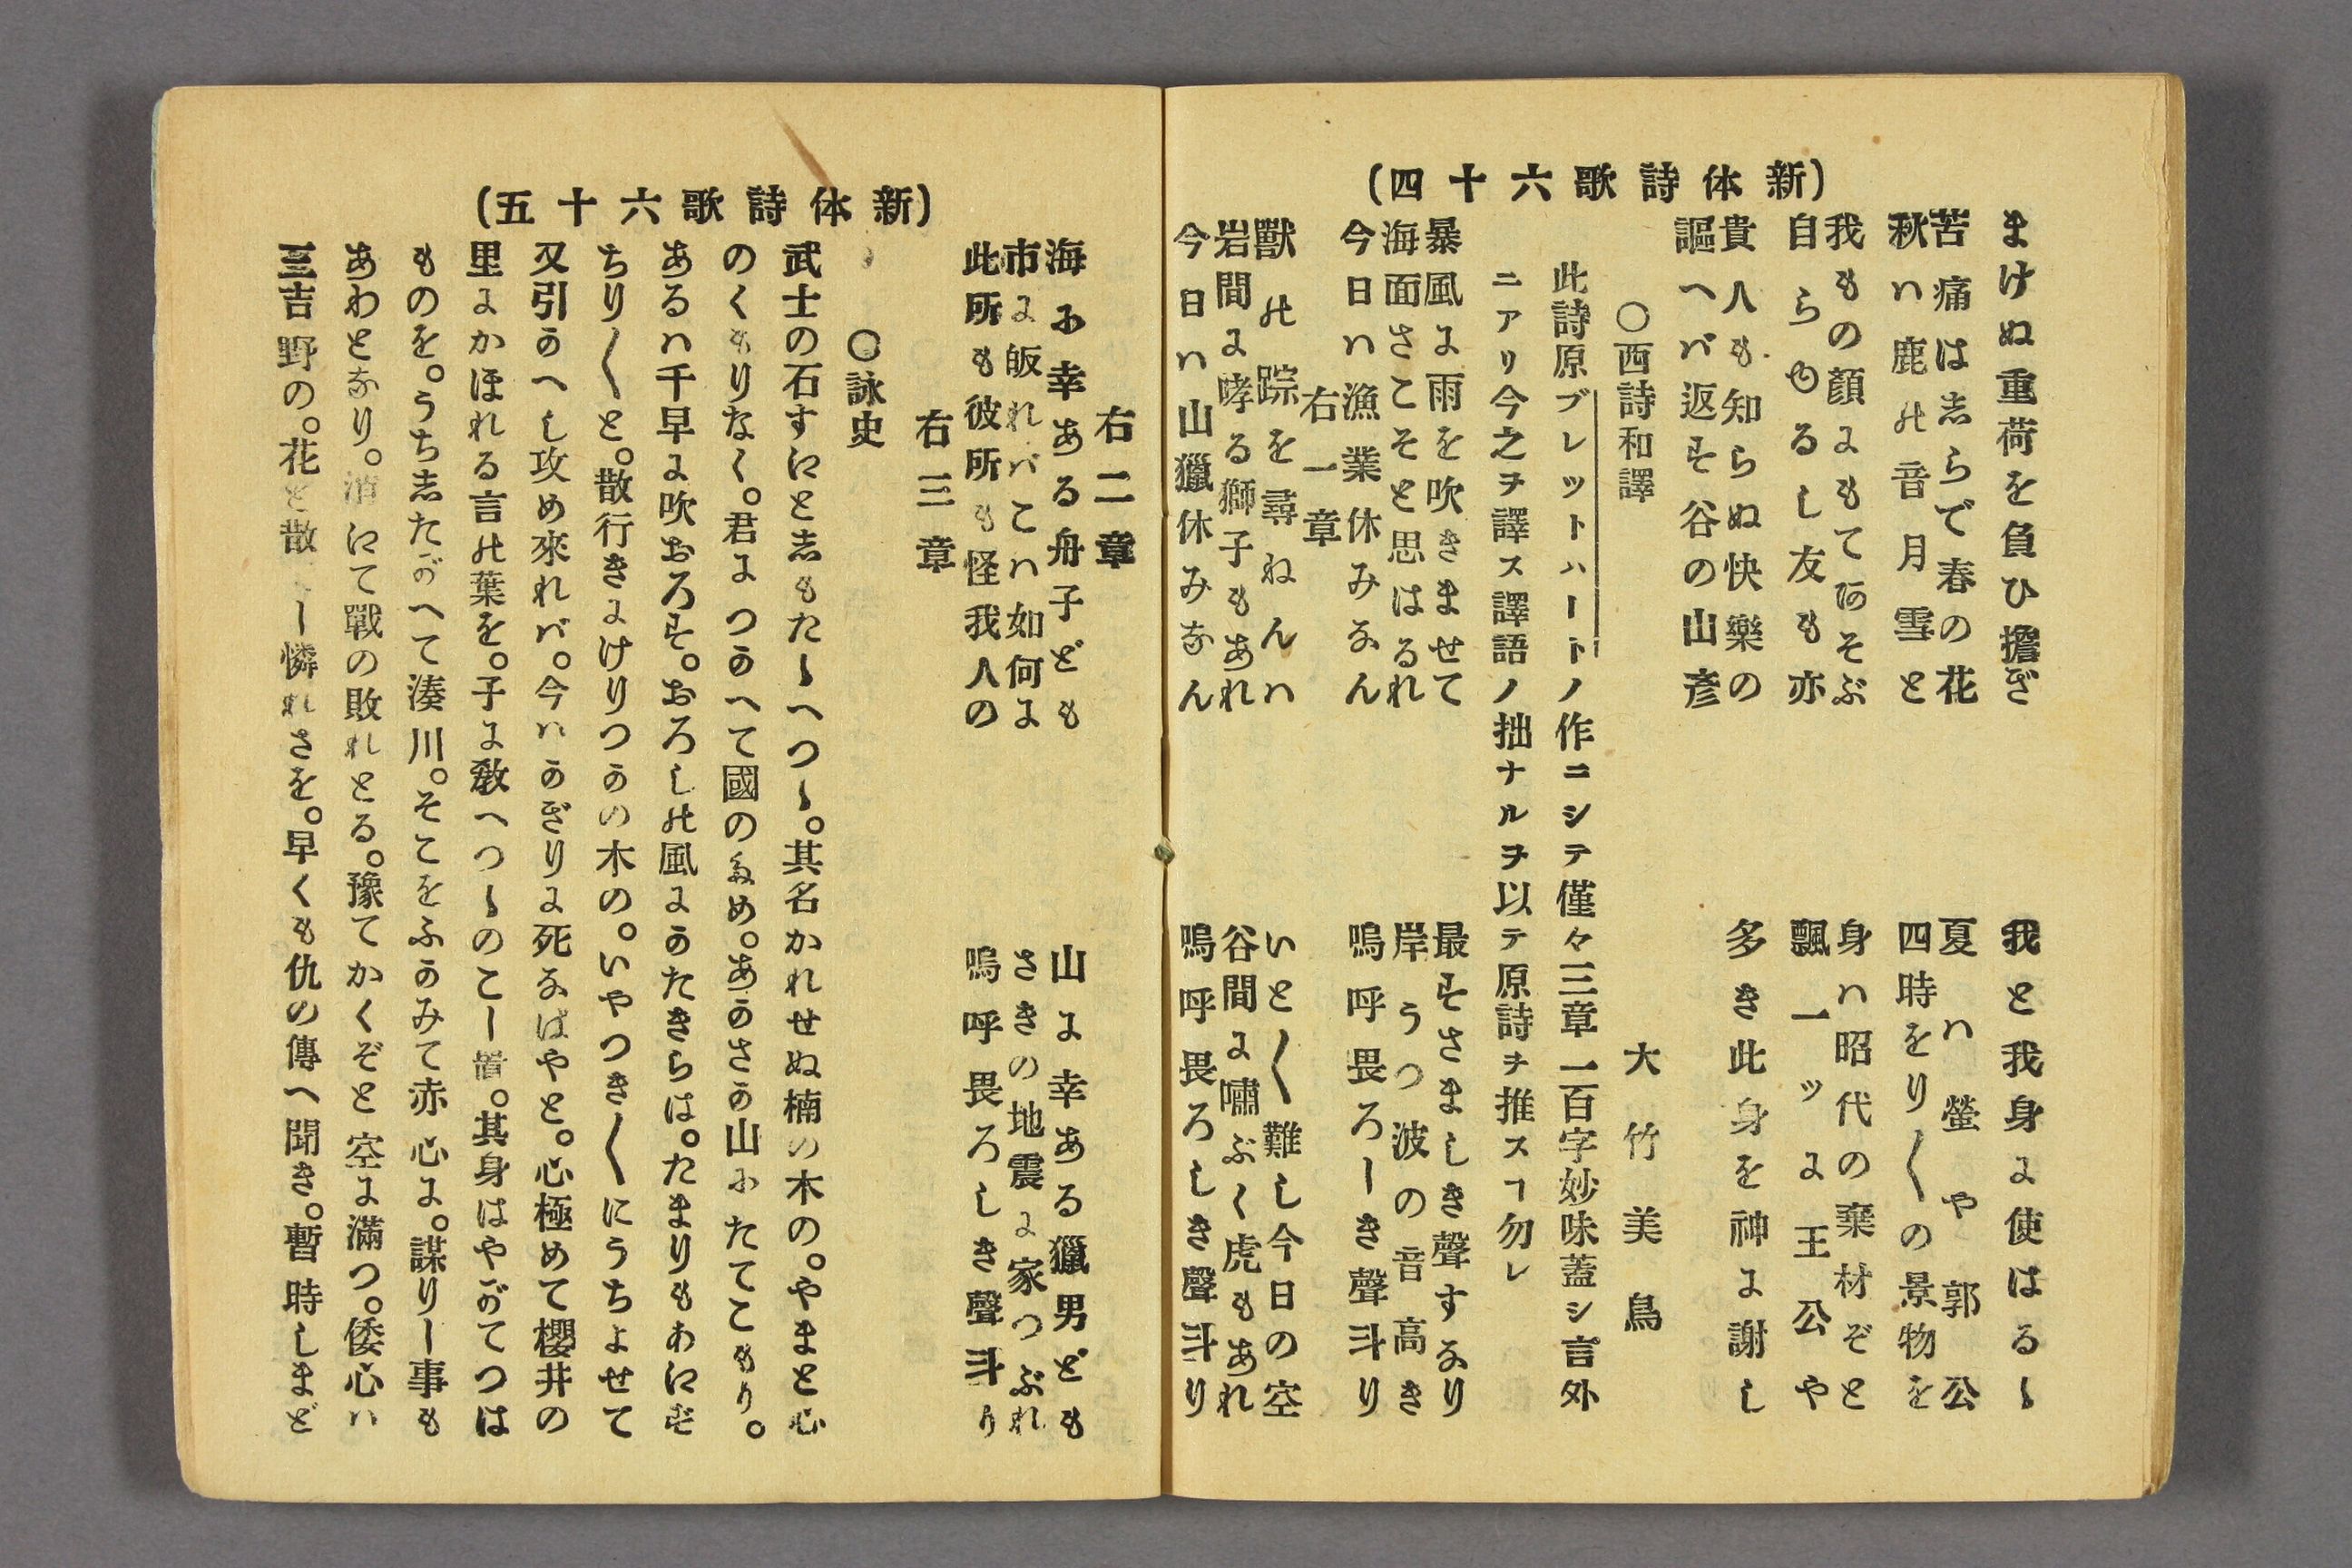 (新体詩歌六十四)
まけぬ重荷を負ひ擔ぎ　我と我身に使はるゝ
苦痛は志らで春の花　夏ハ螢や郭公
秋ハ鹿の音月雪と　四時をり〱の景物を
我もの顔にもてあそぶ　身ハ昭代の棄材ぞと
自らゆるし友も亦　飄一ツに王公や
貴人も知らぬ快樂の　多き此身を神に謝し
謳へバ返す谷の山彦
○西詩和譯　大竹美鳥
此詩原ブレットハートノ作ニシテ僅々三章一百字妙味蓋シ言外
ニアリ今之ヲ譯ス譯語ノ拙ナルヲ以テ原詩ヲ推スヿ勿レ
暴風に雨を吹きませて　最すさましき聲すなり
海面さこそと思はるれ　岸うつ波の音高き
今日ハ漁業休みなん　嗚呼畏ろしき聲斗り
右一章
獸の踪を尋ねんハ　いと〱難し今日の空
岩間に哮る獅子もあれ　谷間に嘯ぶく虎もあれ
今日ハ山獵休みなん　嗚呼畏ろしき聲斗り
(新体詩歌六十五)
右二章
海に幸ある舟子ども　山に幸ある獵男ども
市に皈れバこハ如何に　さきの地震に家つぶれ
此所も彼所も怪我人の　嗚呼畏ろしき聲斗り
右三章
○詠史
武士の石すにと志もたゝへつゝ。其名かれせぬ楠の木の。やまと心
のくもりなく。君につかへて國のため。あかさか山にたてこもり。
あるハ千早に吹おろす。おろしの風にかたきらは。たまりもあにず
ちり〱と。散行きにけりつかの木の。いやつき〱にうちよせて
又引かへし攻め來れバ。今ハかぎりに死なばやと。心極めて櫻井の
里にかほれる言の葉を。子に敎へつゝのこし置。其身はやがてつは
ものを。うち志たがへて湊川。そこをふかみて赤心に。謀りし事も
あわとなり。消にて戰の敗れとる。豫てかくぞと空に滿つ。倭心ハ
三吉野の。花と散りし憐れさを。早くも仇の傳へ聞き。暫時しまど